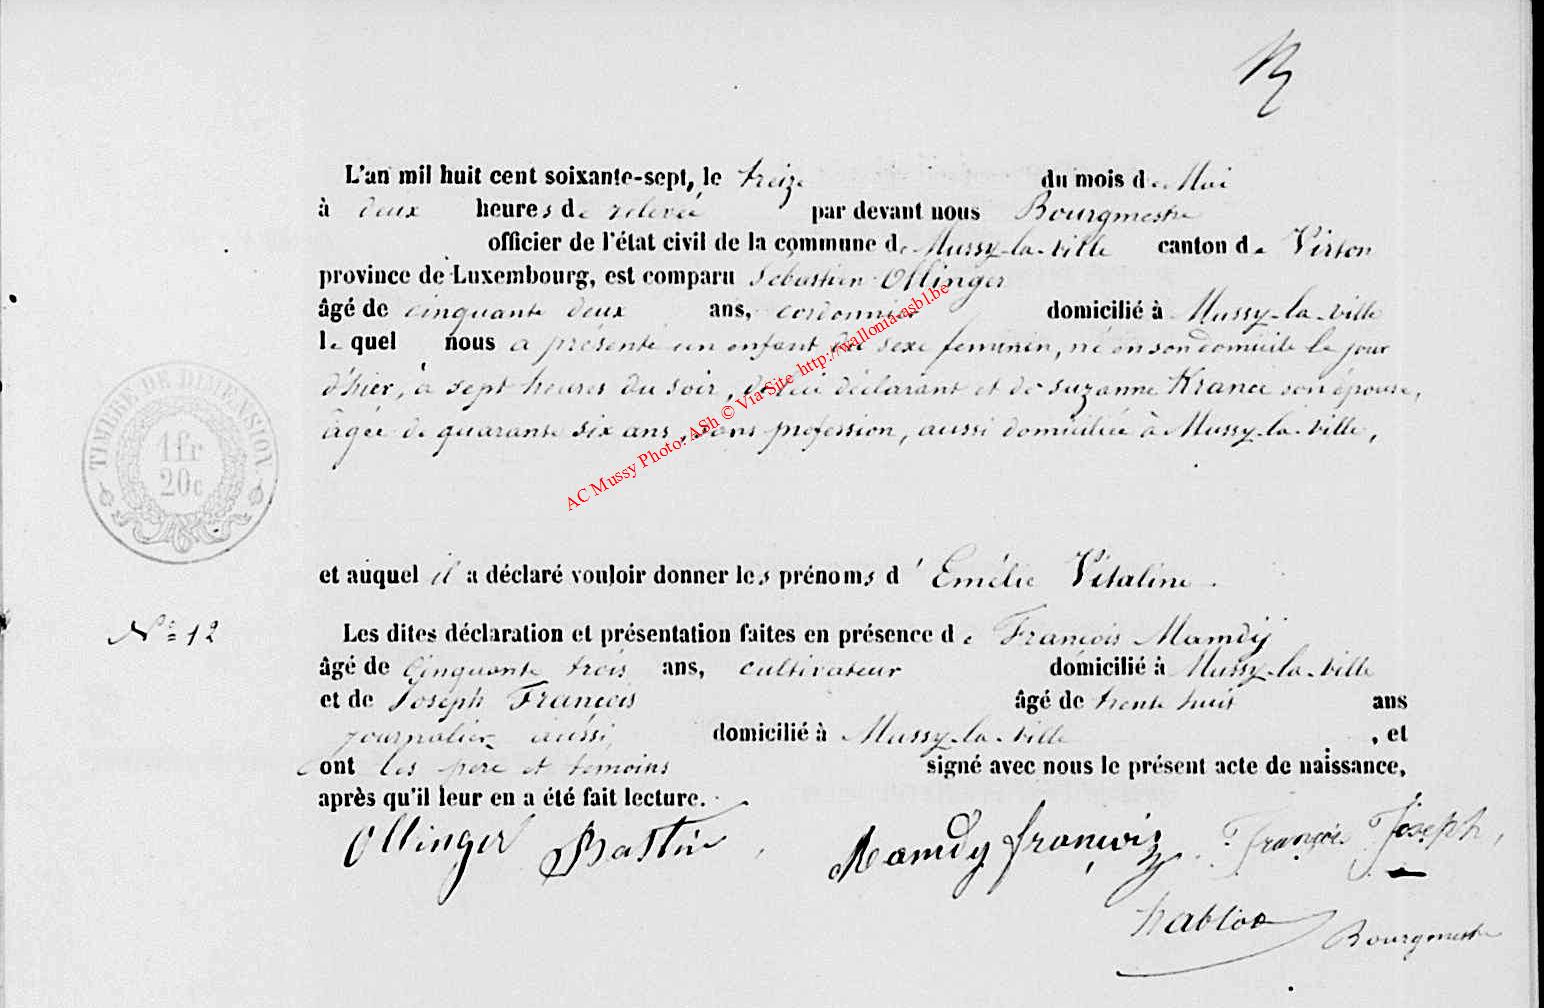 L'an mil huit cent soixante-sept, le treize du mois de Mai
à deux heures de relevée par devant nous Bourgmestre
officier de l'état civil de la commune de Mussy-la-ville canton de Virton
province de Luxembourg, est comparu Sébastien Ollinger
âgé de cinquante deux ans, cordonnier domicilié à Mussy-la-ville
lequel nous a présenté un enfant du sexe feminin, né en son domicile le jour
d'hier, à sept heures du soir, de lui déclarant et de suzanne son épouse,
âgée de quarante six ans, sans profession, aussi domiciliée à Mussy-la-ville,
AC Mussy Photo: ASh © Via Site http://wallonia-asbl.be
TIMBRE DE DIMENSION
1 fr
20c
et auquel il a déclaré vouloir donner les prénoms d' Emélie Vitaline.
N° 12
Les dites déclaration et présentation faites en présence de François Mamdy
âgé de Cinquante trois ans, cultivateur domicilié à Mussy-la-ville
et de Joseph François âgé de trente huit ans
journalier aussi domicilié à Mussy-la-ville, et
ont les père et temoins signé avec nous le présent acte de naissance,
après qu'il leur en a été fait lecture.
Ollinger Bastin Mamdy françoiz François Joseph,
Bourgmestre